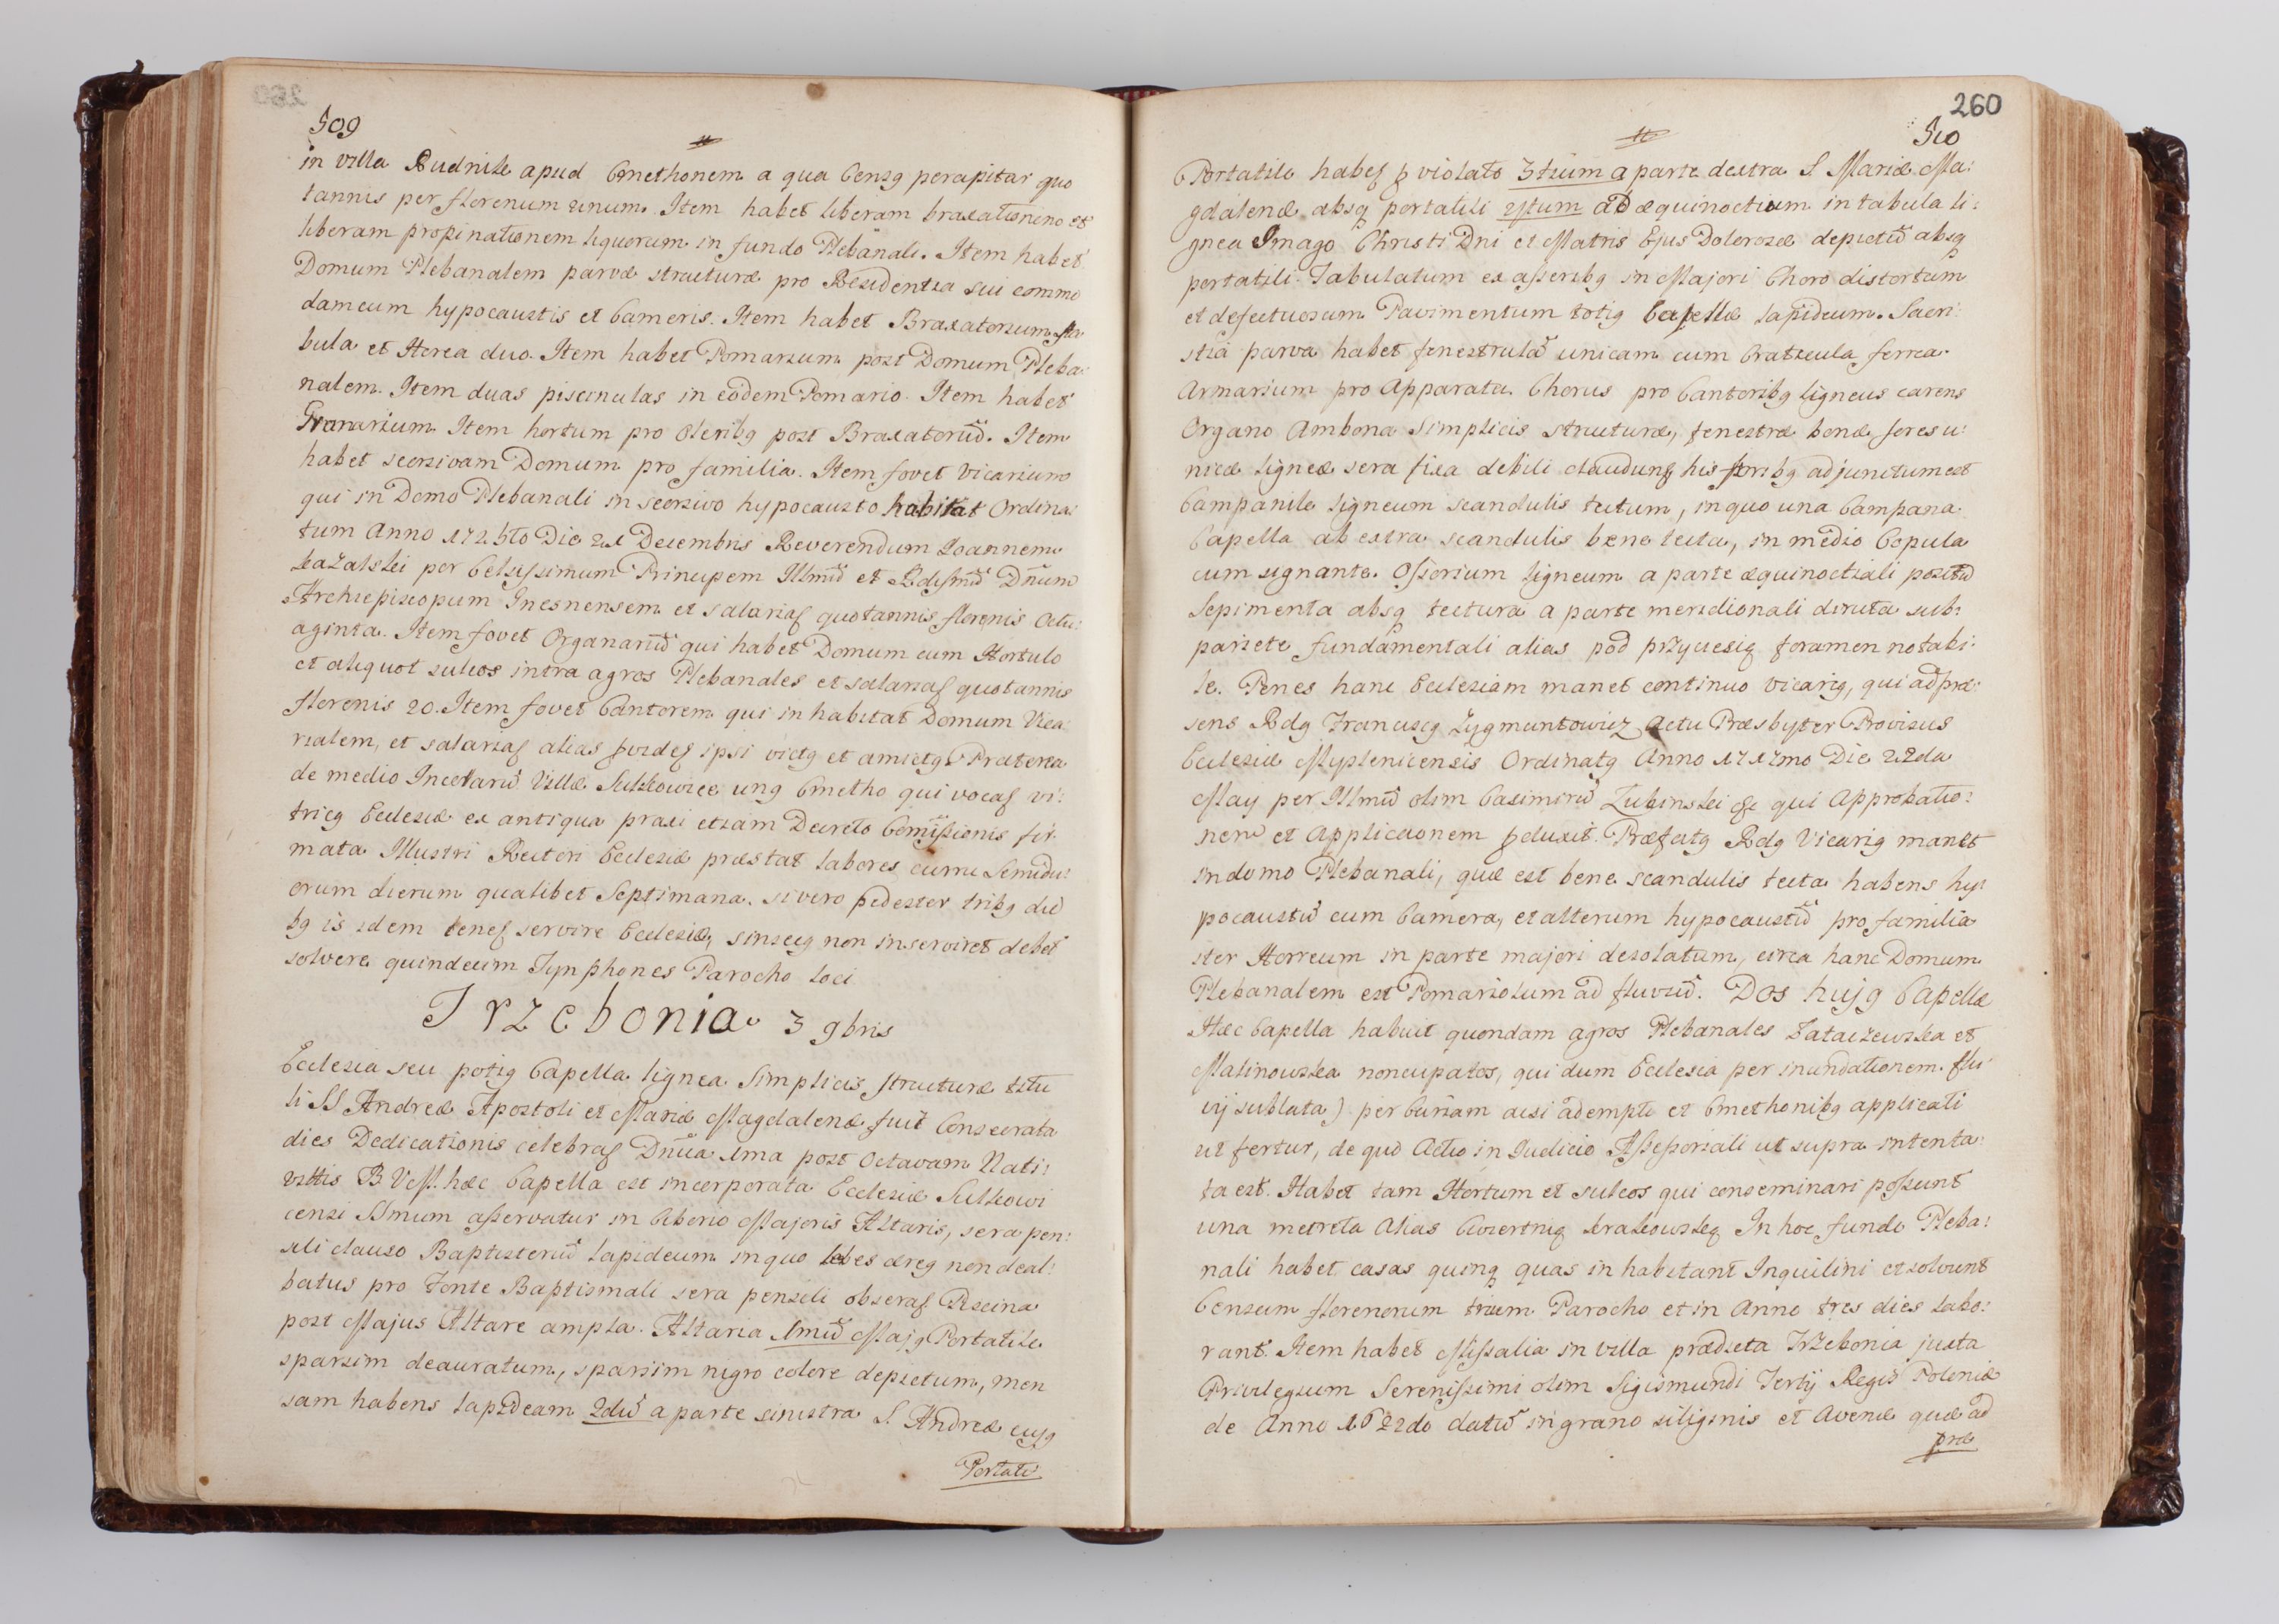 509
in villa Rudnik apud Cmethonem a qua Censg percipitar quo
tannis per florenum unum. Item habet liberam braxationem et
liberam propinationem liquorum in fundo Plebanali. Item habet
Domum Plebanalem parvæ structuræ pro Residentia sui commo
dam cum hypocaustis et Cameris. Item habet Braxatorium sta
bula et Horea duo. Item habet Pomarium post Domum Pleba:
nalem. Item duas piscinulas in eodem Pomario. Item habet
Granarium. Item hortum pro Oleribg post Braxatoriũ. Item
habet seorsivam Domum pro familia. Item fovet Vicarium
qui in Domo Plebanali in seorsivo hypocausto habitat Ordina:
tum Anno 1725to Die 21 Decembris Reverendum Joannem
Kazalski per Celsissimum Principem Illmũ et Rdismũ Dñum
Archiepiscopum Gnesnensem et salariaʃ quotannis florenis Octu:
aginta. Item fovet Organariũ qui habet Domum cum Hortulo
et aliquot sulcos intra agros Plebanales et salariaʃ quotannis
florenis 20. Item fovet Cantorem qui inhabitat Domum Vica:
rialem, et salariaʃ alias ꝑvideʃ ipsi victg et amictg. Præterea
de medio Incolarũ Villæ Sulkowice ung Cmetho qui vocaʃ vi:
tricg Ecclesiæ ex antiqua praxi etiam Decreto Comissionis fir
mata Illustri Rectori Ecclesiæ præstat labores curru semidu:
orum dierum qualibet Septimana. si vero pedester tribg die
bg is idem teneʃ servire Ecclesiæ, sin secg non inserviret debet
solvere quindecim Tymphones Parocho loci
Trzebonia 3 9bris
Ecclesia seu potig Capella lignea Simplicis structuræ titu
li SS Andreæ Apostoli et Mariæ Magdalenæ fuit Consecrata
dies Dedicationis celebraʃ Dñica 1ma post Octavam Nati:
vittis B V M. hæc Capella est incorporata Ecclesiæ Sulkowi
censi SSmum asservatur in Ciborio Majoris Altaris, sera pen:
sili clauso Baptisteriũ lapideum in quo lebes æreg non deal:
batus pro Fonte Baptismali sera pensili obseraʃ Piscina
post Majus Altare ampla. Altaria 1mũ Majg Portatile
sparsim deauratum, sparsim nigro colore depictum, men
sam habens lapideam 2dũ a parte sinistra S. Andreæ cujg
Portati
260
510
Portatile habeʃ ꝑ violato 3tium a parte dextra S Mariæ Ma:
gdalenæ absq portatili 4tum ad æquinoctium in tabula li:
gnea Imago Christi Dni et Matris Ejus Dolorosæ depictũ absq
portatili. Tabulatum ex asseribg in Majori Choro distortum
et defectuosum Pavimentum totig Capellæ lapideum. Sacri:
stia parva habet fenestrulã unicam cum Craticula ferrea.
Armarium pro Apparatu. Chorus pro Cantoribg ligneus carens
Organo Ambona Simplicis structuræ, fenestræ bonæ fores u:
nicæ ligneæ sera fixa debili claudunʃ his foribg adjunctum est
Campanile ligneum scandulis tectum, in quo una Campana.
Capella ab extra scandulis bene tecta, in medio Copula
cum signante. Ossorium ligneum a parte æquinoctiali positũ
Sepimenta absq tectura a parte meridionali diruta sub:
pariete fundamentali alias pod przycieśią foramen notabi:
le. Penes hanc Ecclesiam manet continuo Vicarig, qui ad præ:
sens Rdg Franciscg Zygmuntowicz Actu Præsbyter Provisus
Ecclesiæ Myslenicensis Ordinatg Anno 1717mo Die 22da
May per Illmũ olim Casimirũ Łubinski &c qui Approbatio:
nem et Applicaonem ꝑduxit. Præfatg Rdg Vicarig manet
in domo Plebanali, quæ est bene scandulis tecta habens hy:
pocaustũ cum Camera, et alterum hypocaustũ pro familia
iter Horreum in parte majori desolatum, circa hanc Domum
Plebanalem est Pomariolum ad fluviũ. Dos hujg Capellæ
Hæc Capella habuit quondam agros Plebanales Fatarzewska et
Malinowska noncupatos, qui dum Ecclesia per inundationem flu
vij sublata) per Curiam acsi adempti et Cmethonibg applicati
ut fertur, de quo Actio in Iudicio Assessoriali ut supra intenta:
ta est. Habet tam Hortum et sulcos qui conseminari possunt
una metreta alias Cwiertnią krakowską In hoc fundo Pleba:
nali habet casas quinq quas inhabitant Inquilini et solvunt
Censum florenorum trium Parocho et in Anno tres dies labo:
rant. Item habet Missalia in villa prædicta Trzebonia juxta
Privilegium Serenissimi olim Sigismundi Tertij Regis Poloniæ
de Anno 1622do datũ in grano siliginis et Avenæ quæ ad
præ